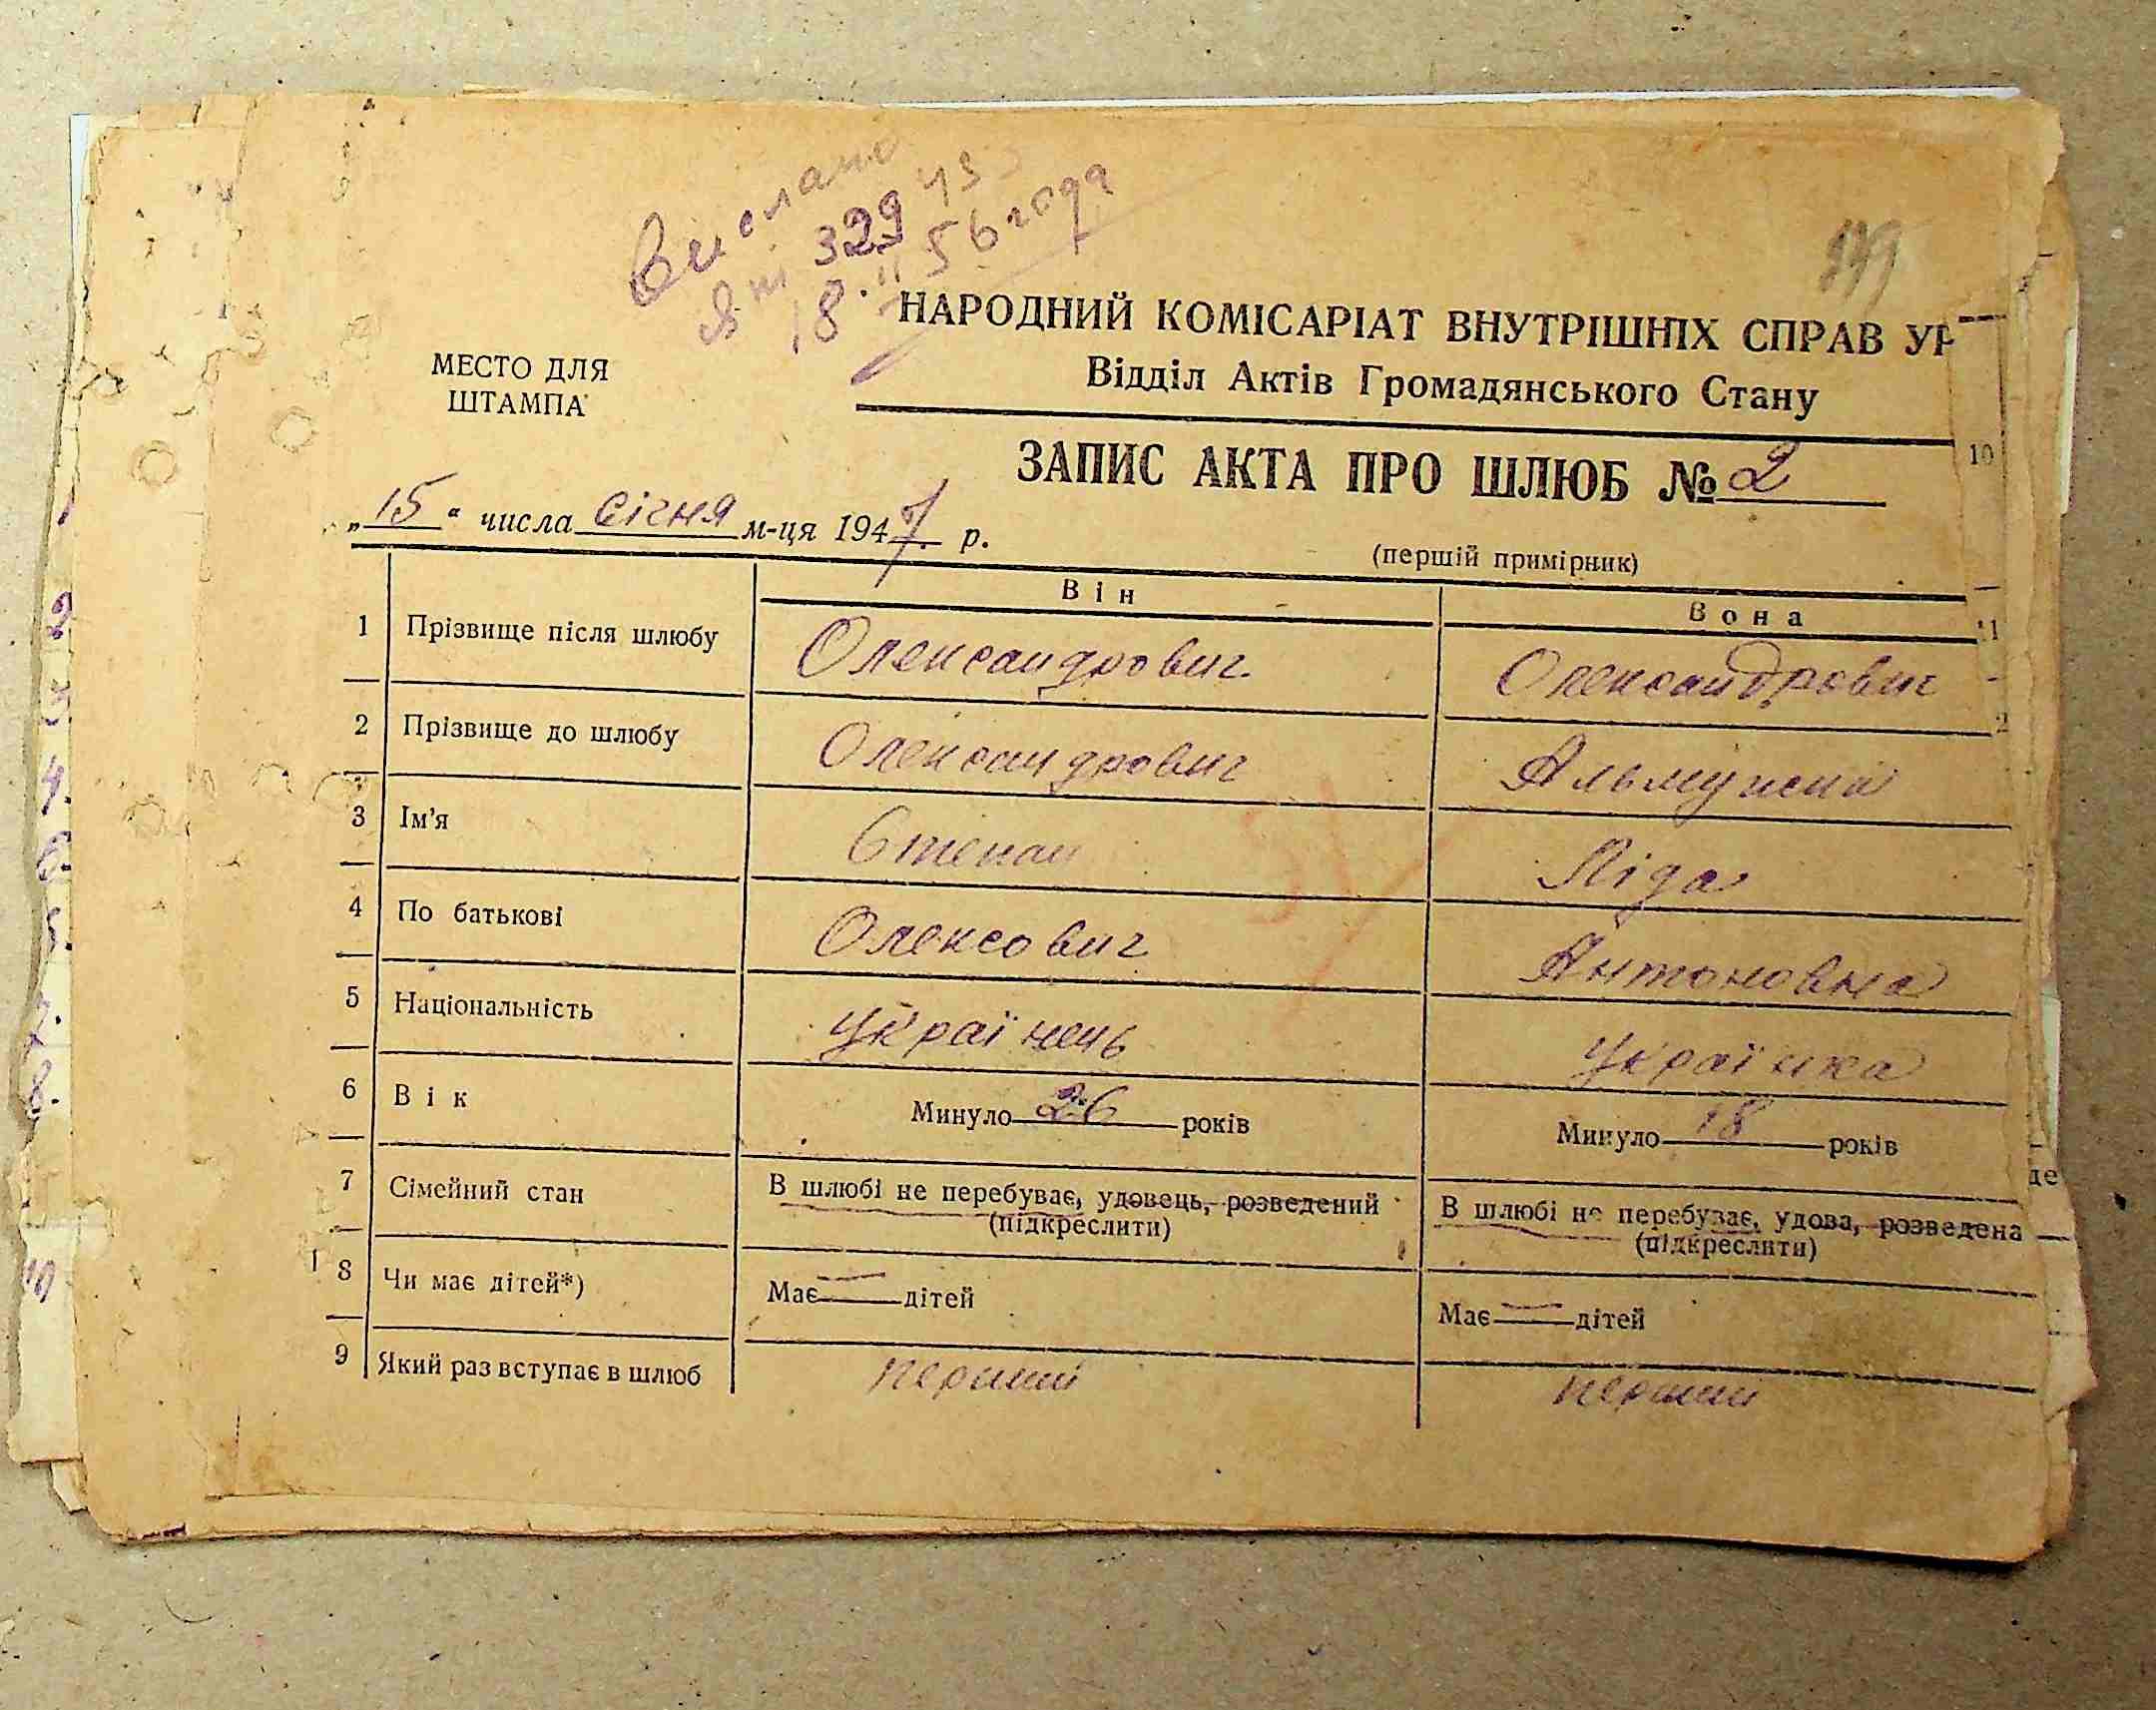 Вислано
329
18.II 56 года
НАРОДНИЙ КОМІСАРІАТ ВНУТРІШНІХ СПРАВ УР
Відділ Актів Громадянського Стану
МЕСТО ДЛЯ
ШТАМПА
ЗАПИС АКТА ПРО ШЛЮБ № 2
10
„15“ числа січня м-ця 1947 р.
(першій примірник)
Він Вона
11
1 Прізвище після шлюбу Олександрович. Олександрович
2 Прізвище до шлюбу Олександрович
3 Ім'я Степан Ліда
4 По батькові Олексович Антоновна
5 Національність Українець Українка
6 Вік Минуло 26 років Минуло 18 років
7 Сімейний стан В шлюбі не перебуває, удовець, розведений В шлюбі не перебуває, удова, розведена
(підкреслити) (підкреслити)
8 Чи має дітей*) Має — дітей Має — дітей
9 Який раз вступає в шлюб перший перший